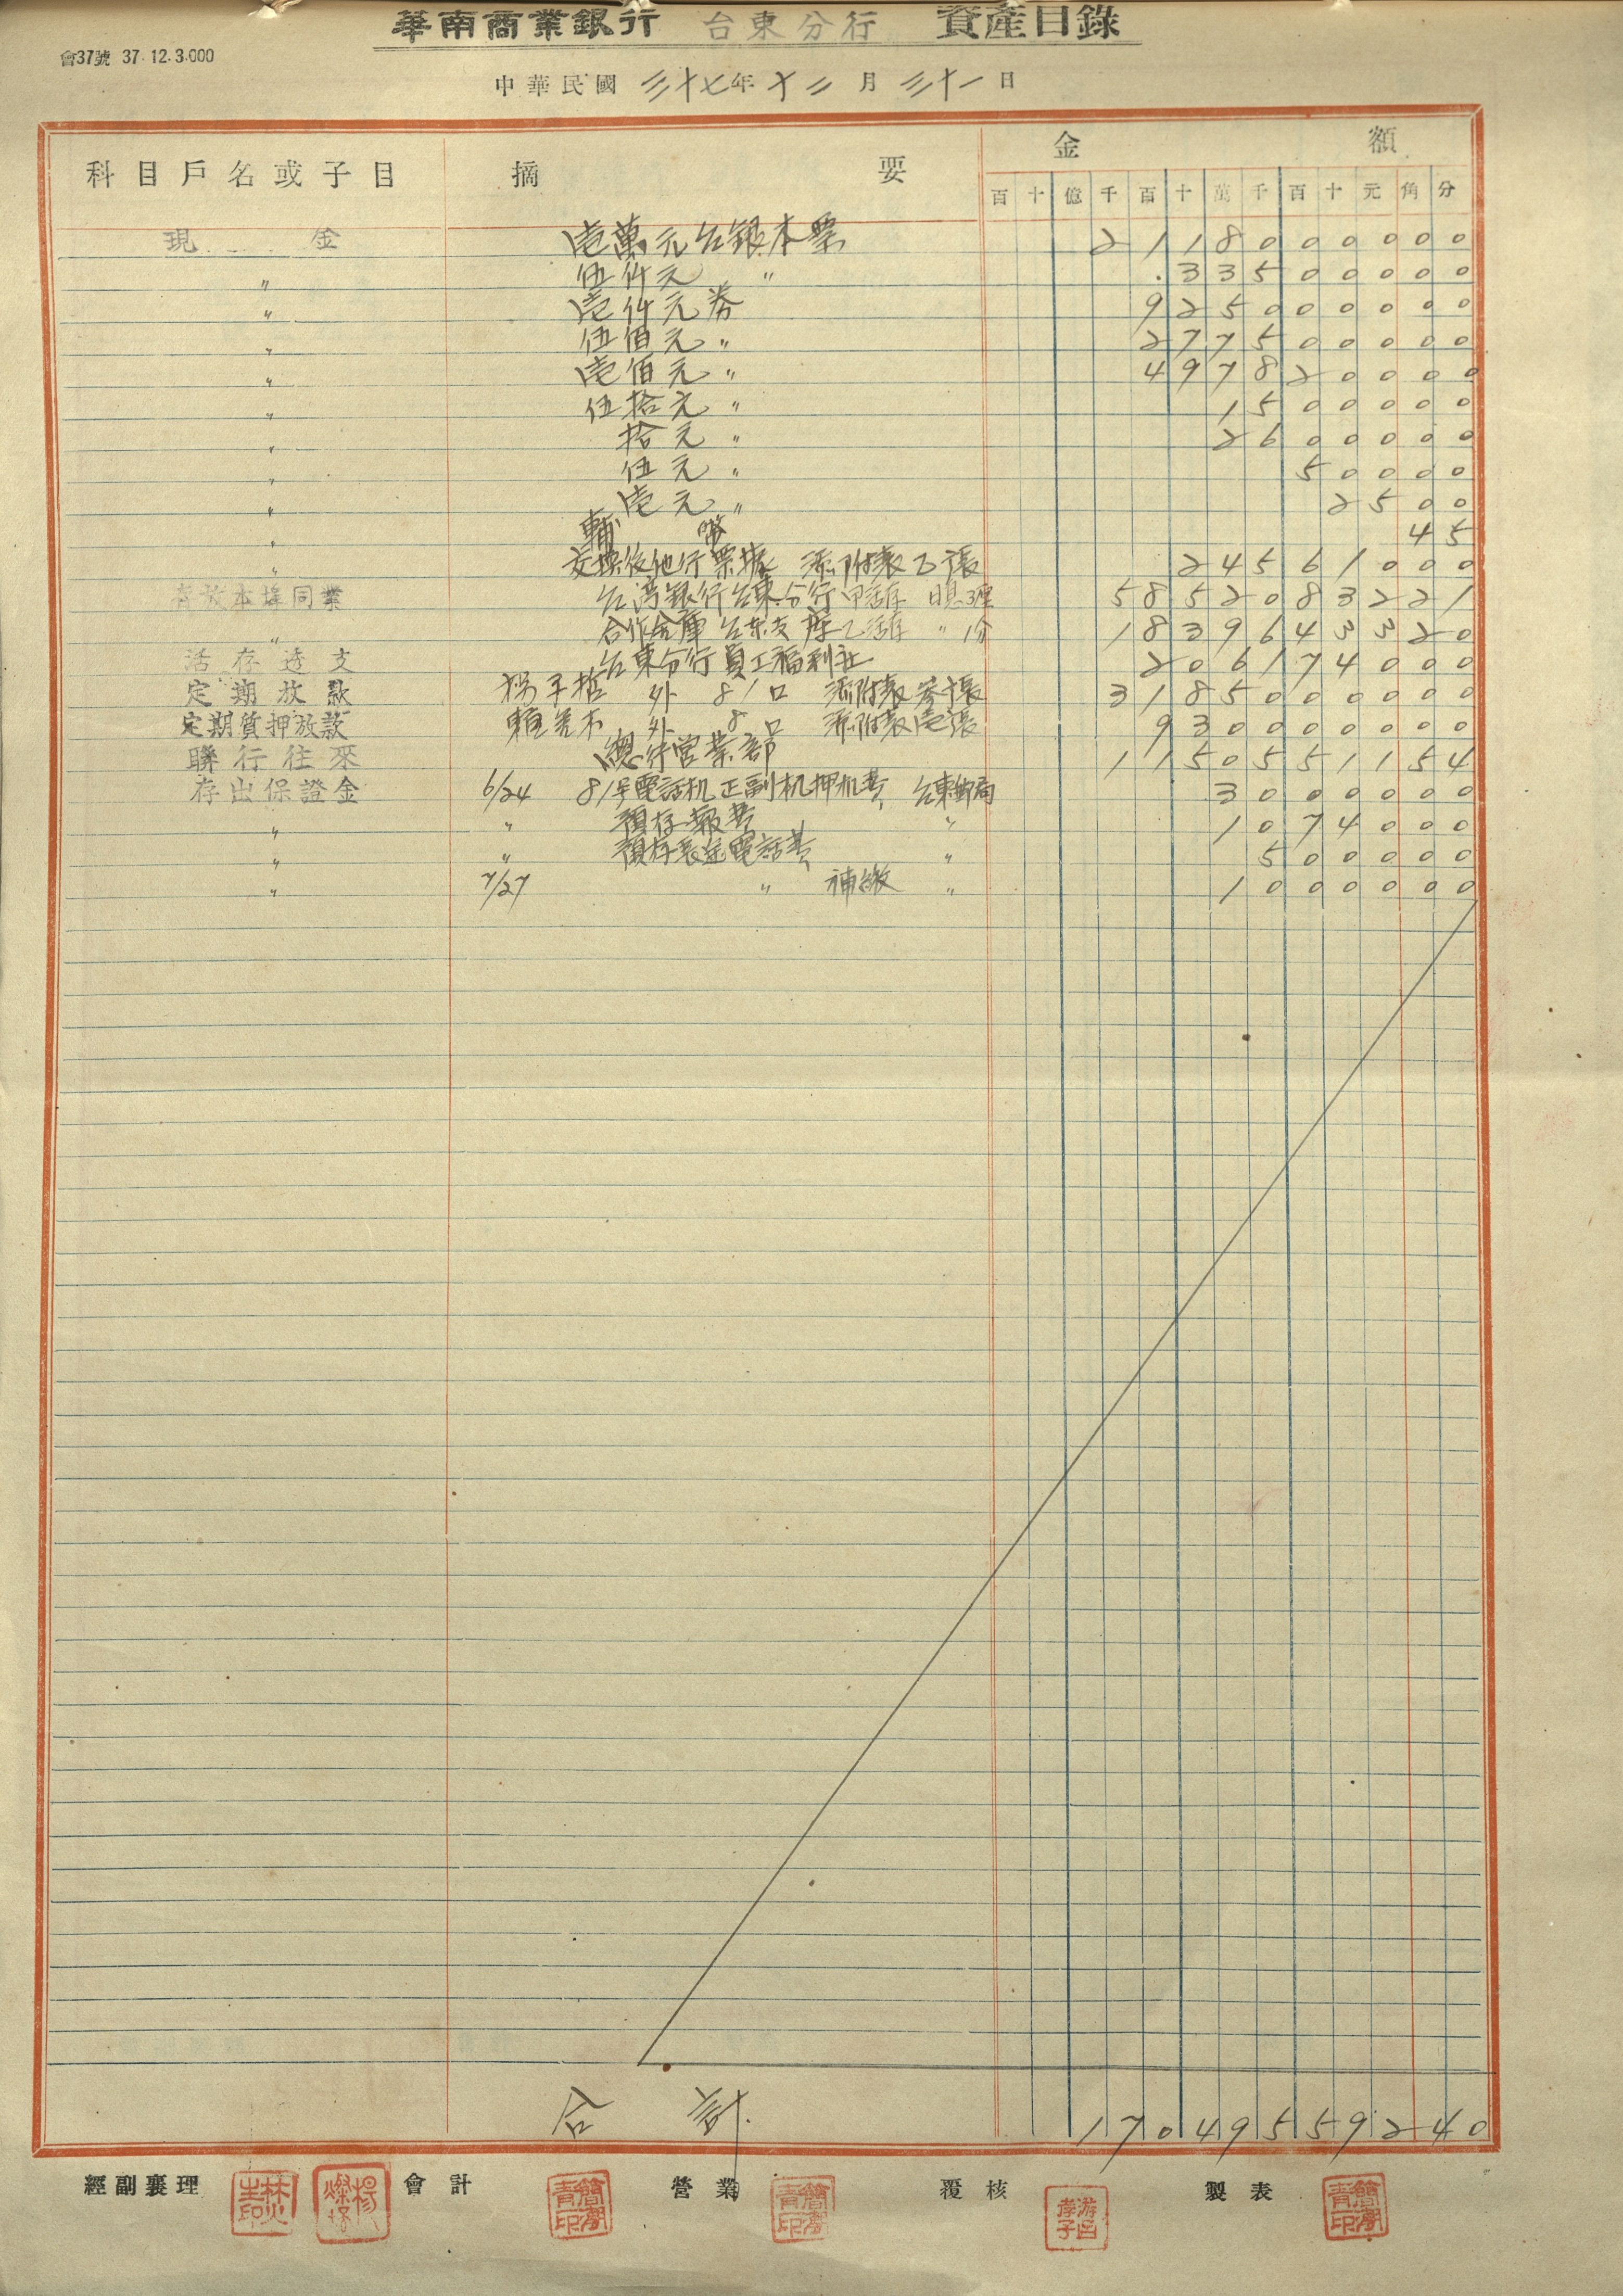 華南商業銀行 台東分行 資產目錄
會37號 37.12.3.000
中華民國 三十七年 十二月 三十一日
科目戶名或子目 摘要 金額
百 十 億 千 百 十 萬 千 百 十 元 角 分
現金 壱萬元台銀本票 2118000000 0
〃 伍仟元 〃 335000000
〃 壱仟元券 925000000
〃 伍佰元 〃 277500000
〃 壱佰元 〃 497820000
〃 伍拾元 〃 1500000
〃 拾元 〃 2600000
〃 伍元 〃 50000
〃 壱元 〃 2500
〃 輔幣 45
〃 交換後他行票據 添附表乙張 24561000
存放本埠同業 台湾銀行台東分行甲活存 日息3厘 5852083221
〃 合作金庫台东支庫乙活存 〃 1分 1839643320
活存透支 台東分行員工福利社 206174000
定期放款 外 81口 添附表参張 3185000000
定期質押放款 外 8口 添附表壱張 930000000
聯行往來 總行営業部 1150551154
存出保證金 6/24 81号電話机正副机押机費 台東郵局 3000000
〃 〃 預存報費 〃 1074000
〃 〃 預存長途電話費 〃 500000
〃 7/27 〃 補繳 〃 1000000
合計 17049559240
經副襄理 會計 營業 覆核 製表